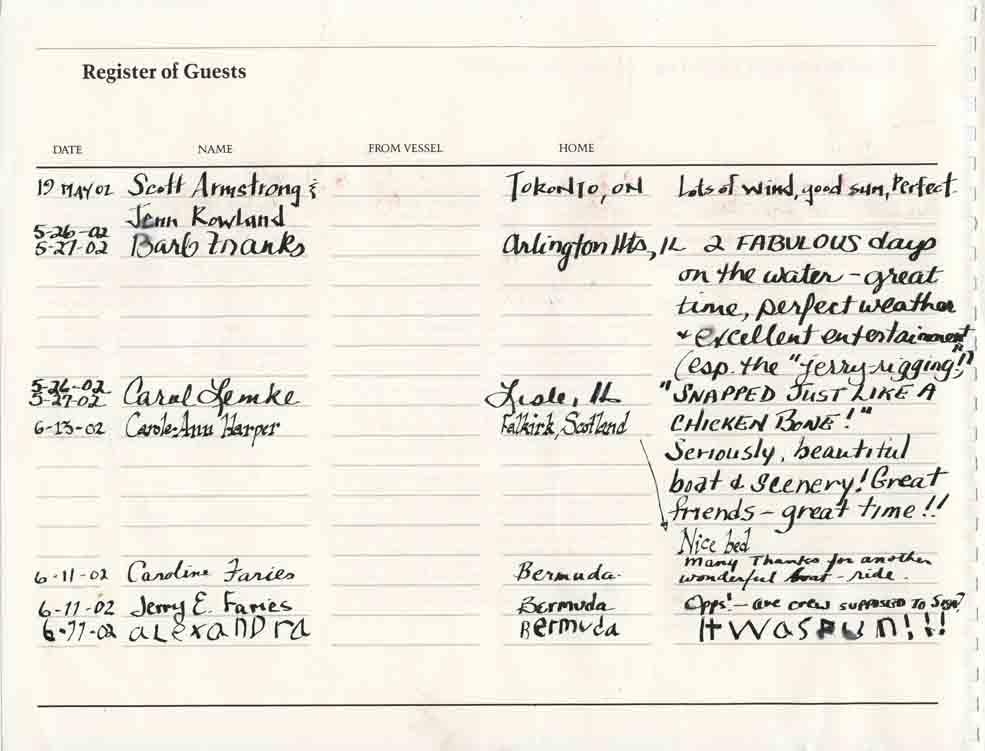 Register of Guests
DATE NAME FROM VESSEL HOME
19 MAY 02 Scott Armstrong & Toronto, ON Lots of wind, good sun, Perfect.
Jenn Rowland
5-26-02
5-27-02 Barb Franks Arlington Hts, IL 2 FABULOUS days
on the water - great
time, perfect weather
& excellent entertainment
(esp. the "jerry-rigging!")
5-26-02
5-27-02 Carol Lemke Lisle, IL "SNAPPED JUST LIKE A
6-13-02 Carole-Ann Harper Falkirk, Scotland CHICKEN BONE!"
Seriously, beautiful
boat & scenery! Great
friends - great time!!
Nice bed
Many Thanks for another
6-11-02 Caroline Faries Bermuda. wonderful boat-ride.
6-11-02 Jerry E. Faries Bermuda Opps! - are crew supposed to sign?
6-11-02 alexandra Bermuda It was fun!!!